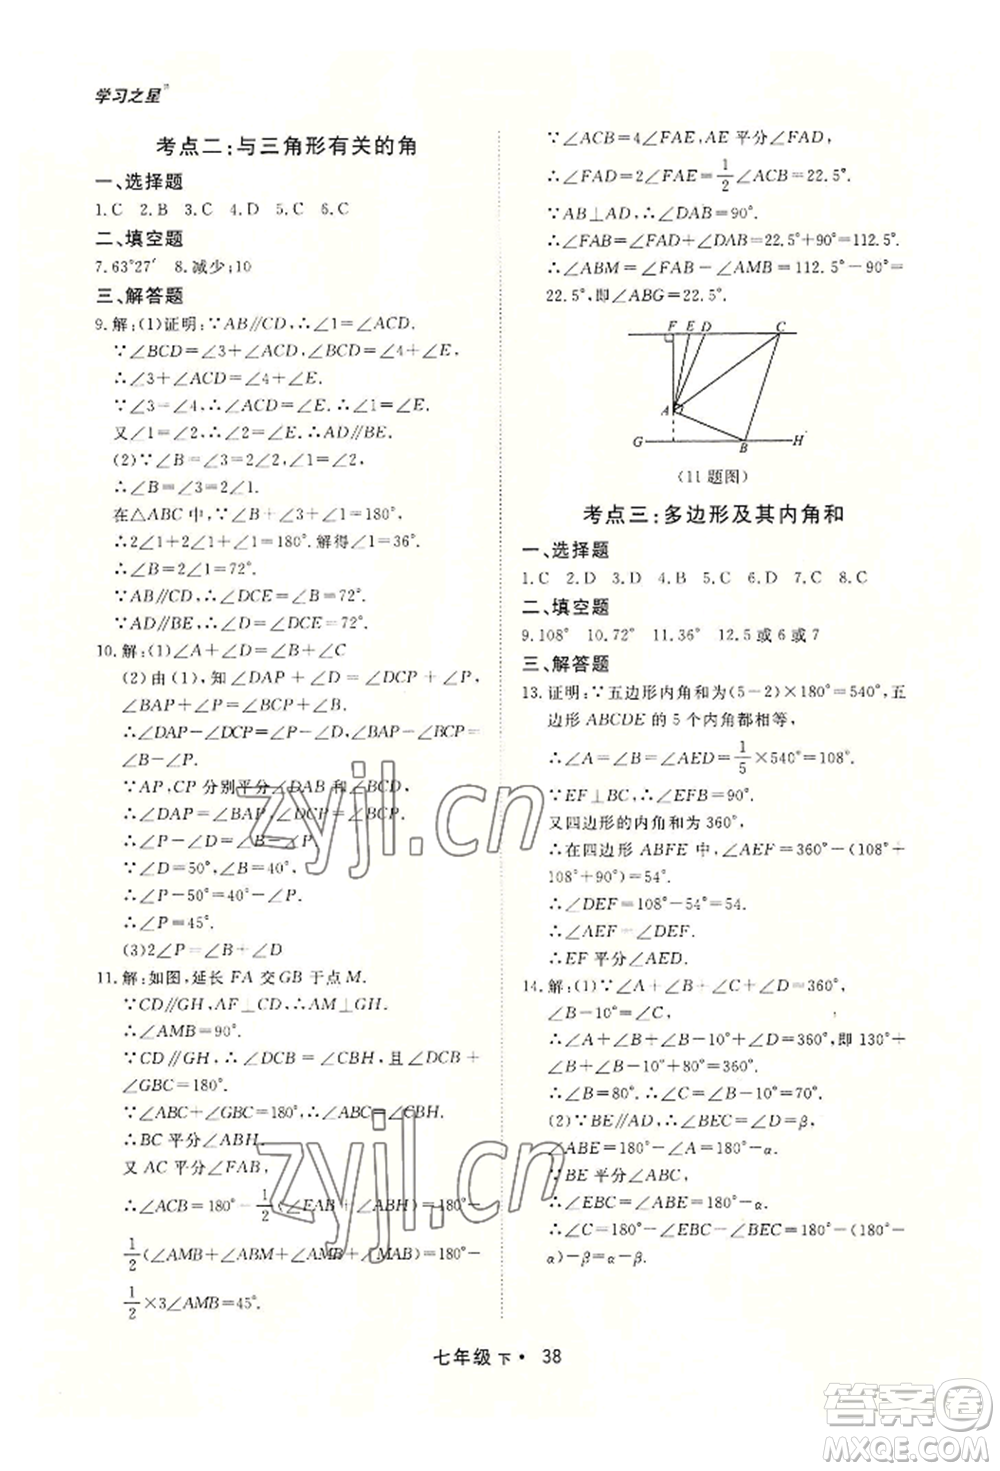 学习之星
考点二:与三角形有关的角
一、选择题
1.C 2.B 3.C 4.D 5.C 6.C
二、填空题
7.63°27′ 8.减少;10
三、解答题
9.解:(1)证明:∵AB∥CD,∴∠1=∠ACD.
∵∠BCD=∠3+∠ACD=∠4+∠E,
∴∠3+∠ACD=∠4+∠E.
∵∠3=∠4,∴∠ACD=∠E.∴∠1=∠E.
又∠1=∠2,∴∠2=∠E.∴AD∥BE.
(2)∵∠B=∠3=2∠2,∠1=∠2,
∴∠B=∠3=2∠1.
在△ABC中,∠B+∠3+∠1=180°,
∴2∠1+2∠1+∠1=180°.解得∠1=36°.
∴∠B=2∠1=72°.
∵AB∥CD,∴∠DCE=∠B=72°.
∵AD∥BE,∴∠D=∠DCE=72°.
10.解:(1)∠A+∠D=∠B+∠C
(2)由(1),知∠DAP+∠D=∠DCP+∠P,
∠BAP+∠P=∠BCP+∠B.
∴∠DAP-∠DCP=∠P-∠D,∠BAP-
∠BCP=∠B-∠P.
∵AP,CP分别平分∠DAB和∠BCD,
∴∠DAP=∠BAP,∠DCP=∠BCP.
∴∠P-∠D=∠B-∠P.
∵∠D=50°,∠B=40°,
∴∠P-50°=40°-∠P.
∴∠P=45°.
(3)2∠P=∠B+∠D
11.解:如图,延长FA交GB于点M.
∵CD∥GH,AF⊥CD,∴AM⊥GH.
∴∠AMB=90°.
∵CD∥GH,∴∠DCB=∠CBH,且∠DCB+
∠GBC=180°.
∵∠ABC+∠GBC=180°,∴∠ABC=∠CBH.
∴BC平分∠ABH.
又AC平分∠FAB,
∴∠ACB=180°-1/2(∠FAB+∠ABH)=180°-
1/2(∠AMB+∠ABM+∠AMB+∠MAB)=180°-
1/2×3∠AMB=45°.
∵∠ACB=4∠FAE,AE平分∠FAD,
∴∠FAD=2∠FAE=1/2∠ACB=22.5°.
∵AB⊥AD,∴∠DAB=90°.
∴∠FAB=∠FAD+∠DAB=22.5°+90°=112.5°.
∴∠ABM=∠FAB-∠AMB=112.5°-90°=
22.5°,即∠ABG=22.5°.
F E D C
A
G B H
(11题图)
考点三:多边形及其内角和
一、选择题
1.C 2.D 3.D 4.B 5.C 6.D 7.C 8.C
二、填空题
9.108° 10.72° 11.36° 12.5或6或7
三、解答题
13.证明:∵五边形内角和为(5-2)×180°=540°,五
边形ABCDE的5个内角都相等,
∴∠A=∠B=∠AED=1/5×540°=108°.
∵EF⊥BC,∴∠EFB=90°.
又四边形的内角和为360°,
∴在四边形ABFE中,∠AEF=360°-(108°+
108°+90°)=54°.
∴∠DEF=108°-54°=54.
∴∠AEF=∠DEF.
∴EF平分∠AED.
14.解:(1)∵∠A+∠B+∠C+∠D=360°,
∠B-10°=∠C,
∴∠A+∠B+∠B-10°+∠D=360°,即130°+
∠B+∠B-10°+80°=360°.
∴∠B=80°.∴∠C=∠B-10°=70°.
(2)∵BE∥AD,∴∠BEC=∠D=β,
∠ABE=180°-∠A=180°-α.
∵BE平分∠ABC,
∴∠EBC=∠ABE=180°-α.
∴∠C=180°-∠EBC-∠BEC=180°-(180°-
α)-β=α-β.
七年级 下 · 38
zyjl.cn
zyjl.cn
答案圈
MXQE.COM